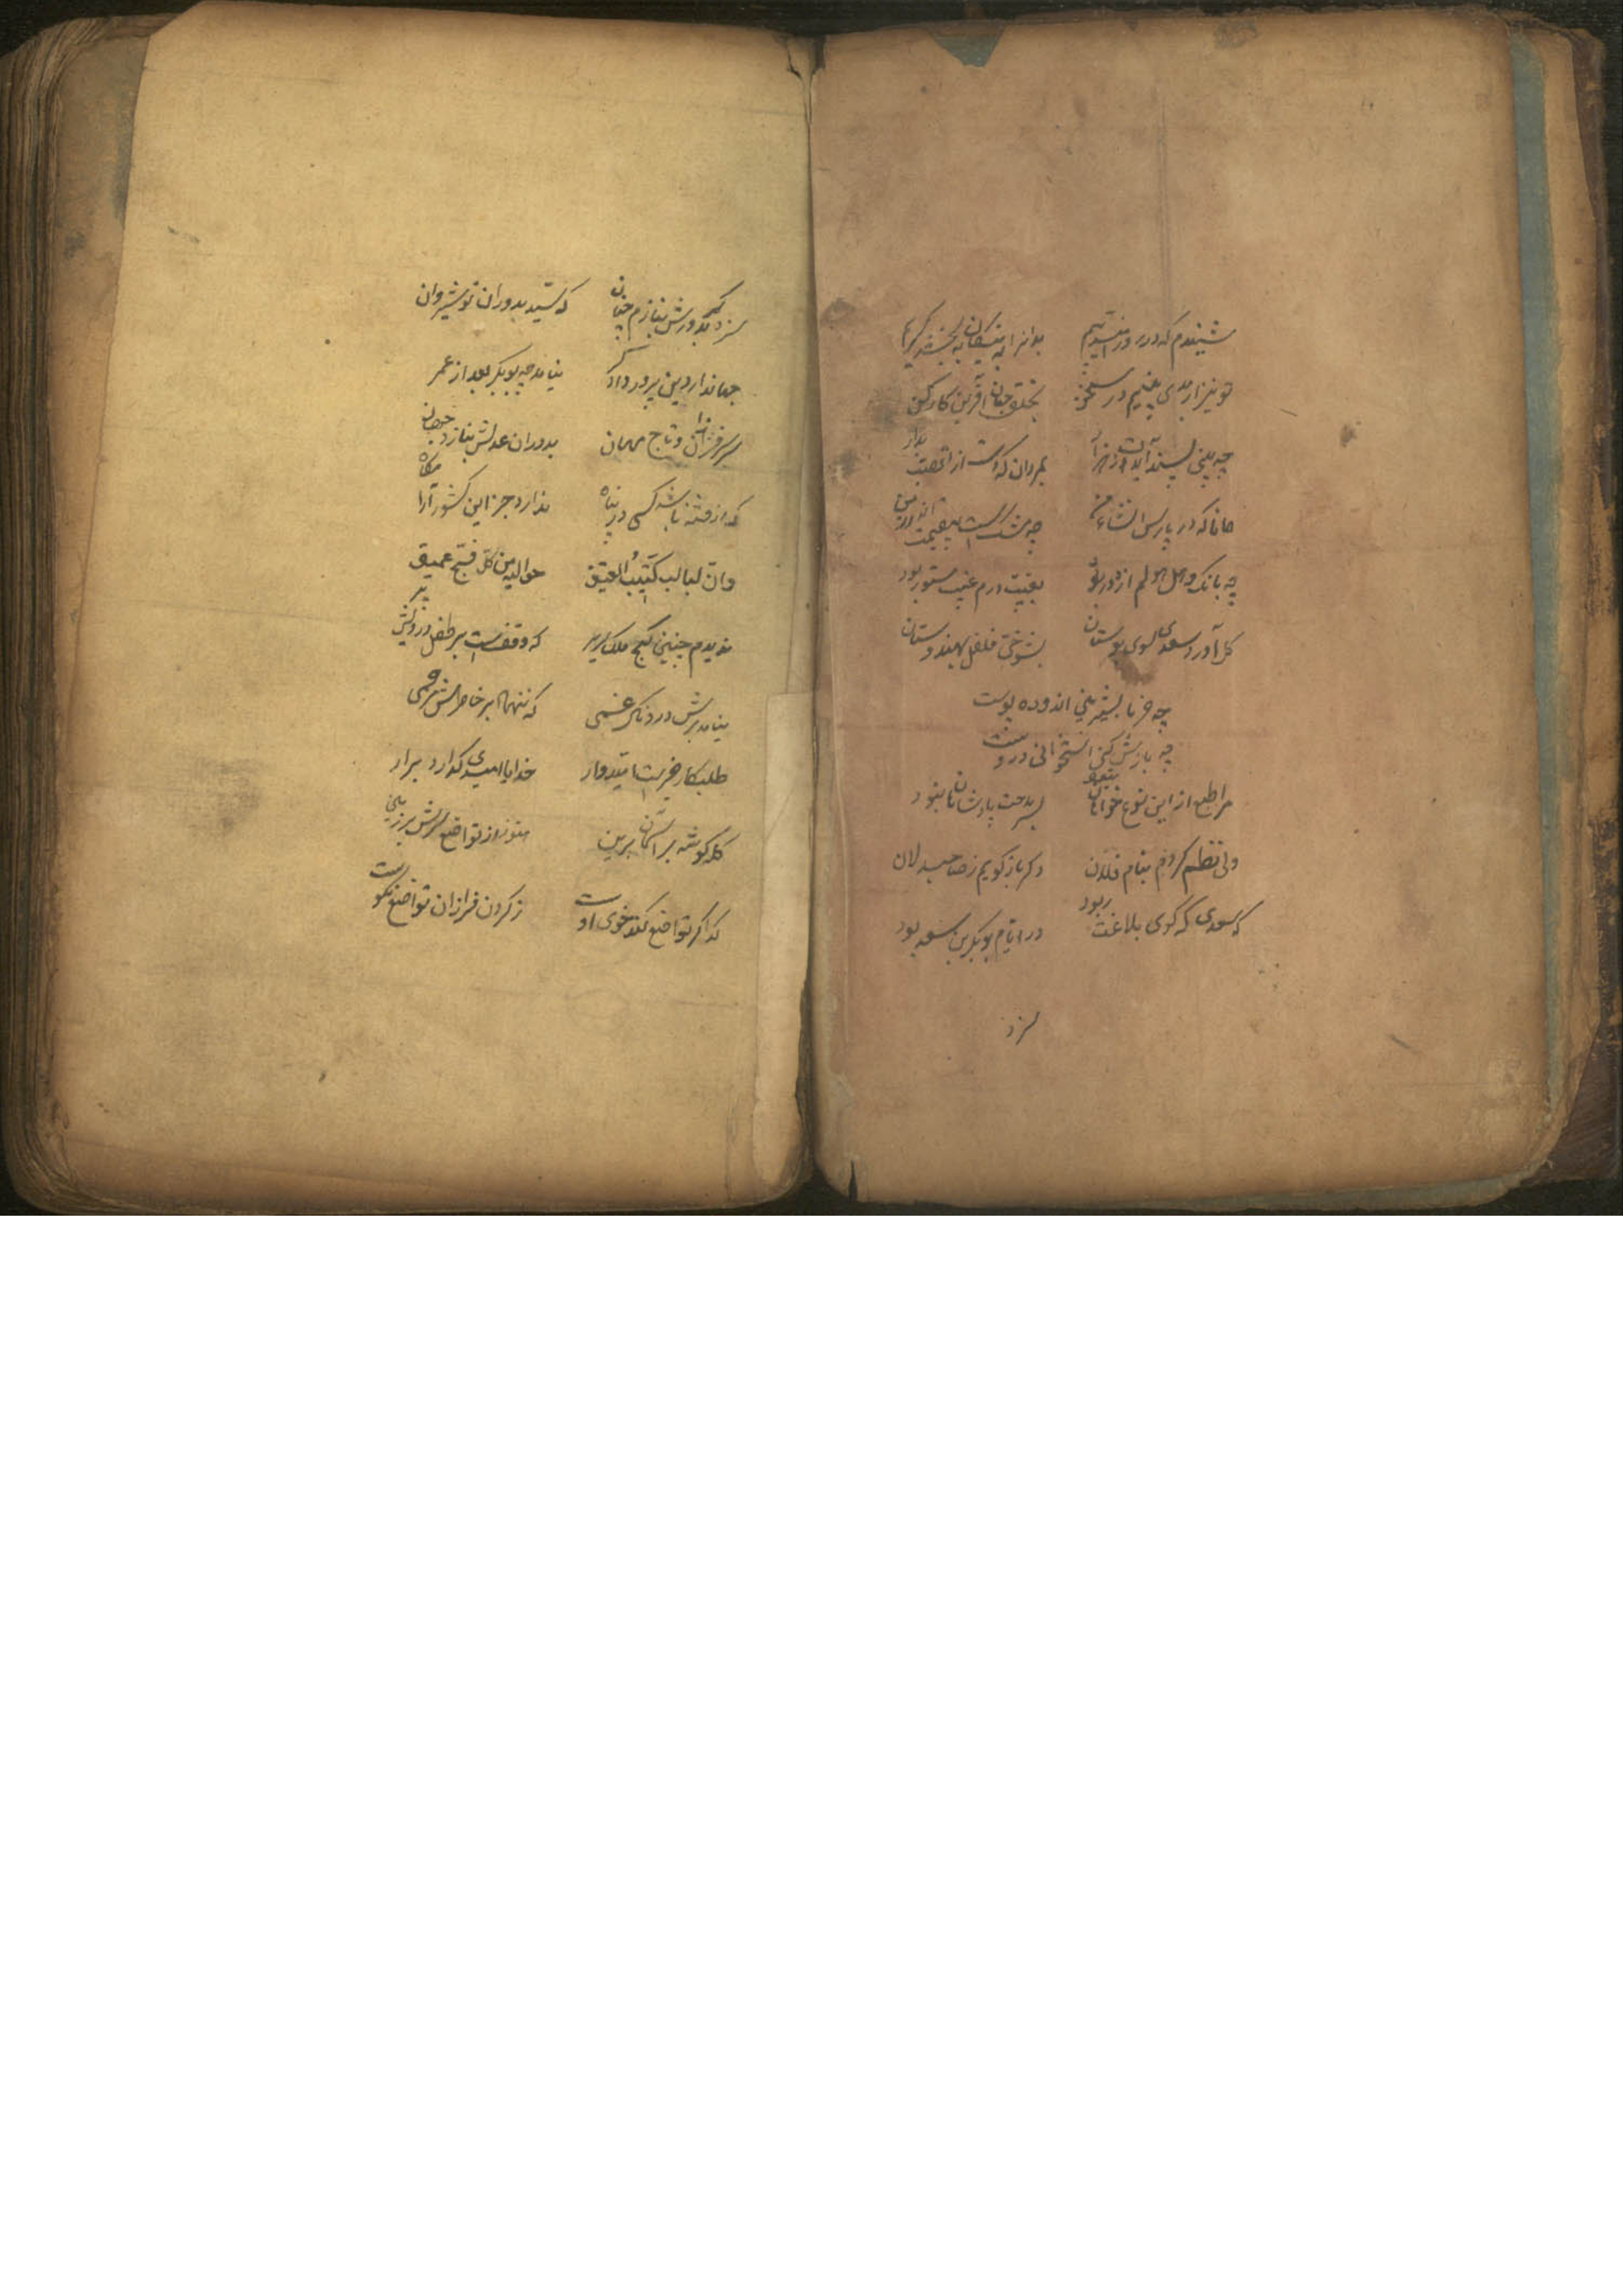 شنیدم که در روز امید و بیم بدانرا به نیکان ببخشد کریم
تو نیز ار بدی بینیم در سخن بخلق جهان آفرین کار کن
چه بیتی پسند آیدت از هزار بمردی که دست از تعنت بدار
همانا که در پارس انشاء من چه مشکست بی‌قیمت اندر ختن
چه بانک دهل هولم از دور بود بغیبت درم عیب مستور بود
کل آورد سعدی سوی بوستان بشوخی فلفل بهندوستان
چه خرما بشیرینی اندوده پوست
چه بازش کنی استخوانی دروست
مرا طبع ازاین نوع خواهان نبود سر مدحت پادشاهان نبود
ولی نظم کردم بنام فلان دکر باز کویم ز صاحبدلان
که سعدی که کوی بلاغت ربود در ایام بوبکر بن سعد بود
سزد
سزد کر بدورش بنازم چنان که سید بدوران نوشیروان
جهاندار دین پرور دادکر نیامد چه بوبکر بعد از عمر
سر سرفرازان و تاج مهان بدوران عدلش بناز د جهان
کر از فتنه باشد کسی در پناه ندارد جز این کشور آرامگاه
حوالیه من کل فج عمیق
ندیدم چنین کنج ملک سریر که وقفست بر طفل درویش پیر
نیامد برش دردناک غمی که ننهاد بر خاطرش مرهمی
طلبکار خیریست امیدوار خدایا امیدی که دارد برار
کله کوشه بر آسمان برین هنوز از تواضع سرش بر زمین
کدا کر تواضع کند خوی اوست ز کردن فرازان تواضع نکوست